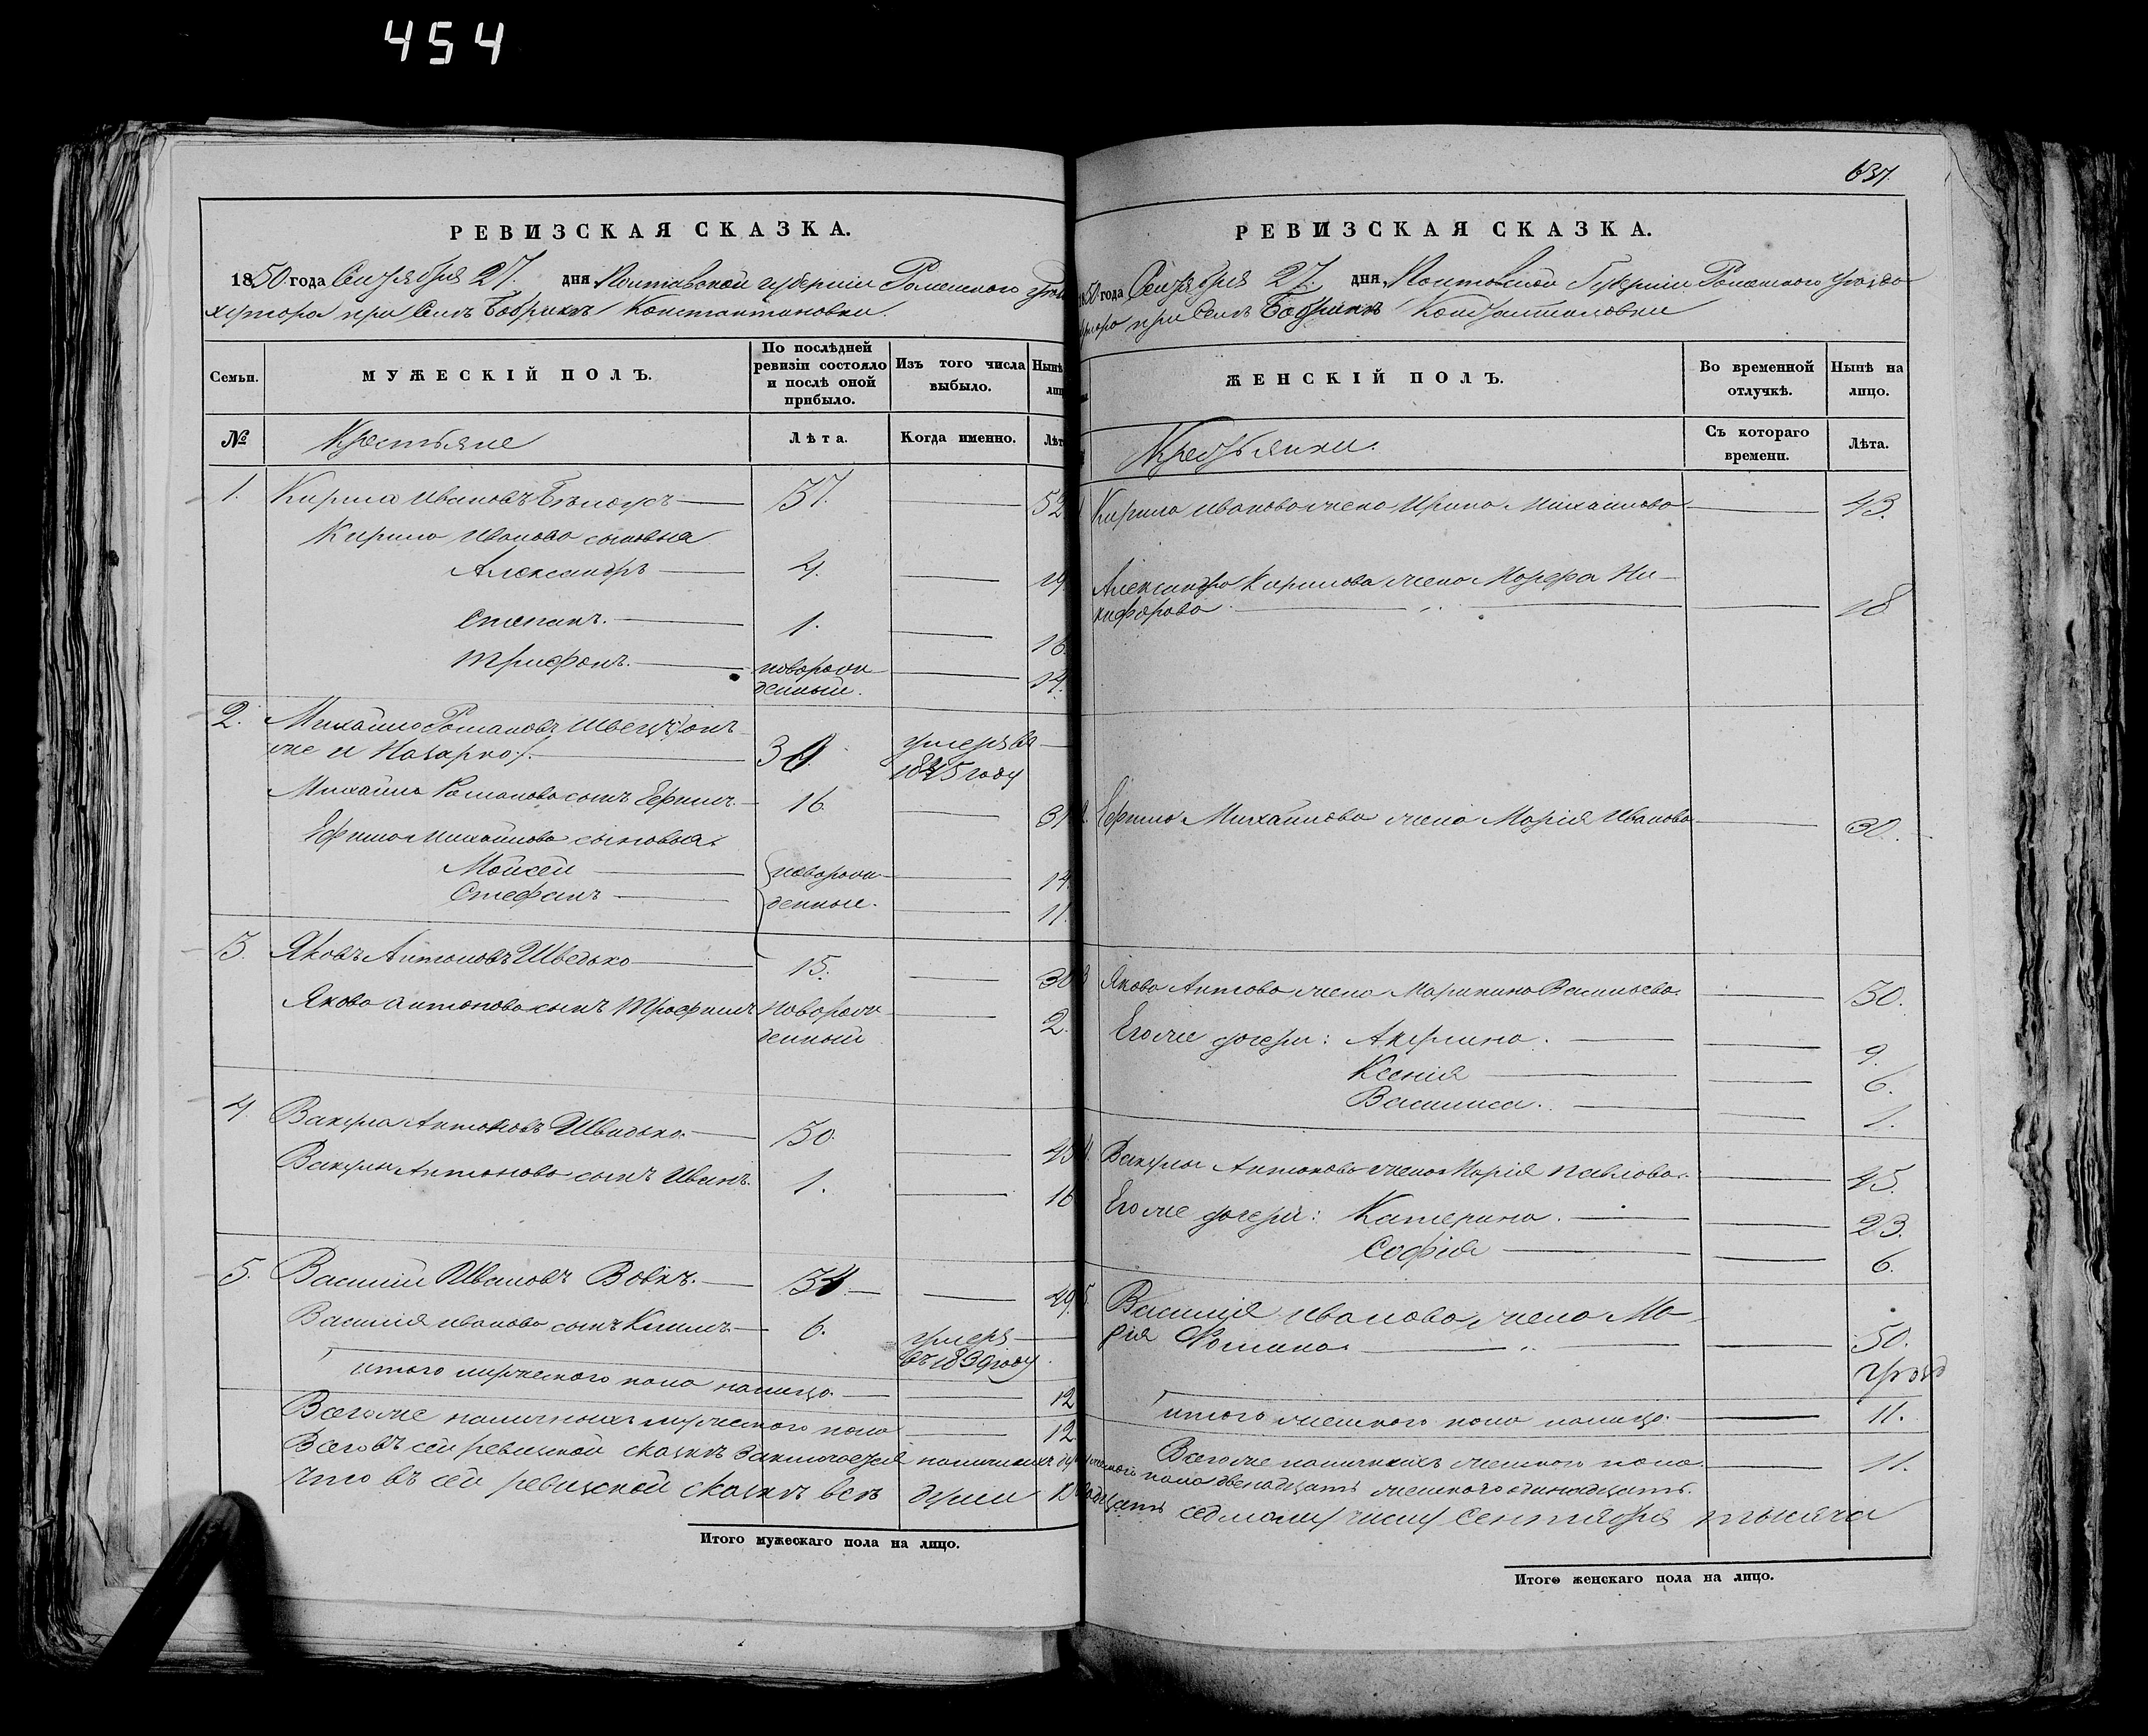 454
РЕВИЗСКАЯ СКАЗКА.
1850 года Сентября 27. дня Полтавской губернии Роменского уезда
хутора при Селе Бобрике Константиновки.
Семьи. МУЖЕСКІЙ ПОЛЪ. По послѣдней ревизіи состояло и послѣ оной прибыло. Изъ того числа выбыло. Нынѣ
№ Крестьяне Лѣта. Когда именно. Лѣт
1. Кирила Ивановъ Бѣлоусъ 37. 52
Кирила Иванова сыновья
Александръ 4. 19
Степанъ. 1. 16.
Трифонъ. новорож
денный. 14.
2. Михайло Романовъ Швецъ /: онъ
же и Назарко :/. 30. умеръ въ
1845 году
Михайла Романова сынъ Ефимъ. 16. 31
Ефима Михайлова сыновья:
Мойсей новорож 14.
Стефанъ денные. 11.
3. Яковъ Антоновъ Шведько 15. 30
Якова Антонова сынъ Трофимъ новорож
денный 2.
4. Вакула Антоновъ Шведько. 30. 45
Вакулы Антонова сынъ Иванъ. 1. 16
5. Василий Ивановъ Вовкъ. 34. 49.
Василия Иванова сынъ Климъ 6. умеръ
въ 1839 году
итого мужеского пола налицо. 12
Всего же наличныхъ мужеского пола 12
Всего въ сей ревизской сказкѣ заключается наличныхъ
Что въ сей ревизской сказкѣ все души
Итого мужескаго пола на лицо.
637.
РЕВИЗСКАЯ СКАЗКА.
50 года Сентября 27. дня Полтавской Губернии Роменского уезда
при Селе Бобрике Константиновки
ЖЕНСКІЙ ПОЛЪ. Во временной отлучкѣ. Нынѣ на лицо.
Крестьянки. Съ котораго времени. Лѣта.
Кирила Иванова жена Ирина Михайлова 43.
Александра Кирилова жена Марфа Ни-
кифорова 18.
2. Ефима Михайлова жена Марія Иванова 30.
3 Якова Антонова жена Марина Васильева. 30.
Его же дочери: Акулина. 9.
Ксенія 6.
Василиса. 1.
4. Вакулы Антонова жена Марія Павлова. 45.
Его же дочери: Катерина. 23.
Софія 6.
5. Василія Иванова жена Ма-
рія Романова 50.
итого женского пола налицо. 11.
Всего же наличныхъ женского пола 11.
пола двенадцать женского одинадцать.
седмому числу Сентября тысяча
Итого женскаго пола на лицо.